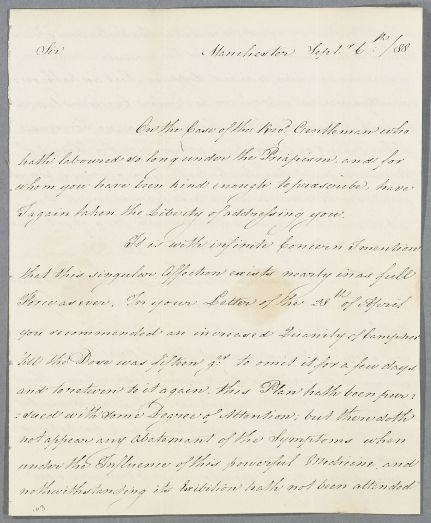 Sir Manchester Septr. 6th. /88
On the Case of the Revd. Gentleman who
hath laboured so long under the Priapism, and for
whom you have been kind enough to prescribe, have
I again taken the Liberty of addressing you.
It is with infinite Concern I mention
that this singular Affection exists nearly in as full
Force as ever. In your Letter of the 28th of April
you recommended an increased Quanity of Camphor
till the Dose was fifteen grs. to omit it for a few days
and to return to it again, this Plan hath been pur:
:sued with some Degree of Attention; but there doth
not appear any Abatemant of the Symptoms when
under the Influence of this powerful Medicine, and
nothwithstanding its Exibition hath not been attended